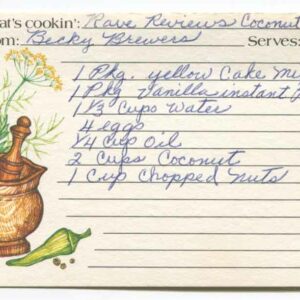 at's cookin': Rave Reviews Coconut
om: Becky Brewers Serves:
1 Pkg. yellow Cake Mi
1 Pkg Vanilla instant
1 1/3 Cups Water
4 eggs
1/4 Cup Oil
2 Cups Coconut
1 Cup Chopped Nuts